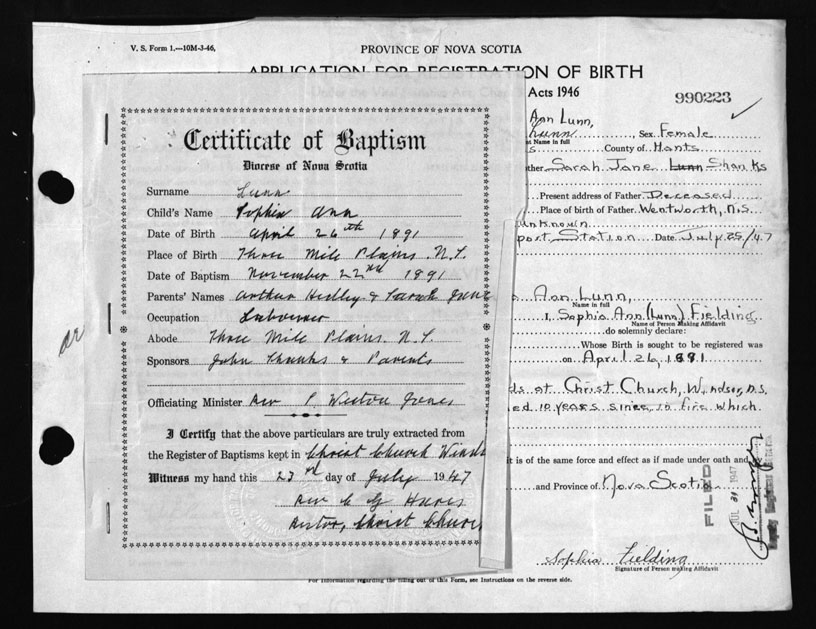 V. S. Form 1.—10M-3-46.
PROVINCE OF NOVA SCOTIA
APPLICATION FOR REGISTRATION OF BIRTH
Acts 1946
990223
Certificate of Baptism
Diocese of Nova Scotia
Surname Lunn
Child's Name Sophia Ann
Date of Birth April 26th 1891
Place of Birth Three Mile Plains. N.S.
Date of Baptism November 22nd 1891
Parents' Names Arthur Hedley & Sarah Jane
Occupation Labourer
Abode Three Mile Plains. N.S.
Sponsors John Shanks & Parents
Officiating Minister Rev P. Weston Jones
I Certify that the above particulars are truly extracted from
the Register of Baptisms kept in Christ Church
Witness my hand this 23rd day of July 1947
Rev
Rector, Christ Church
Ann Lunn,
Lunn , Sex Female
Name in full
s County of Hants
other Sarah Jane Lunn Shanks
Present address of Father Deceased
Place of birth of Father Wentworth, N.S.
unknown
port Station Date July 25/47
Ann Lunn,
Name in full
I, Sophia Ann (Lunn) Fielding
Name of Person Making Affidavit
do solemnly declare:
Whose Birth is sought to be registered was
on April 26, 1891
ds at Christ Church, Windsor, N.S.
ed 10 years since, in fire which
it is of the same force and effect as if made under oath and
and Province of Nova Scotia
FILED
JUL 31 1947
Sophia Fielding
Signature of Person making Affidavit
For information regarding the filling out of this Form, see Instructions on the reverse side.